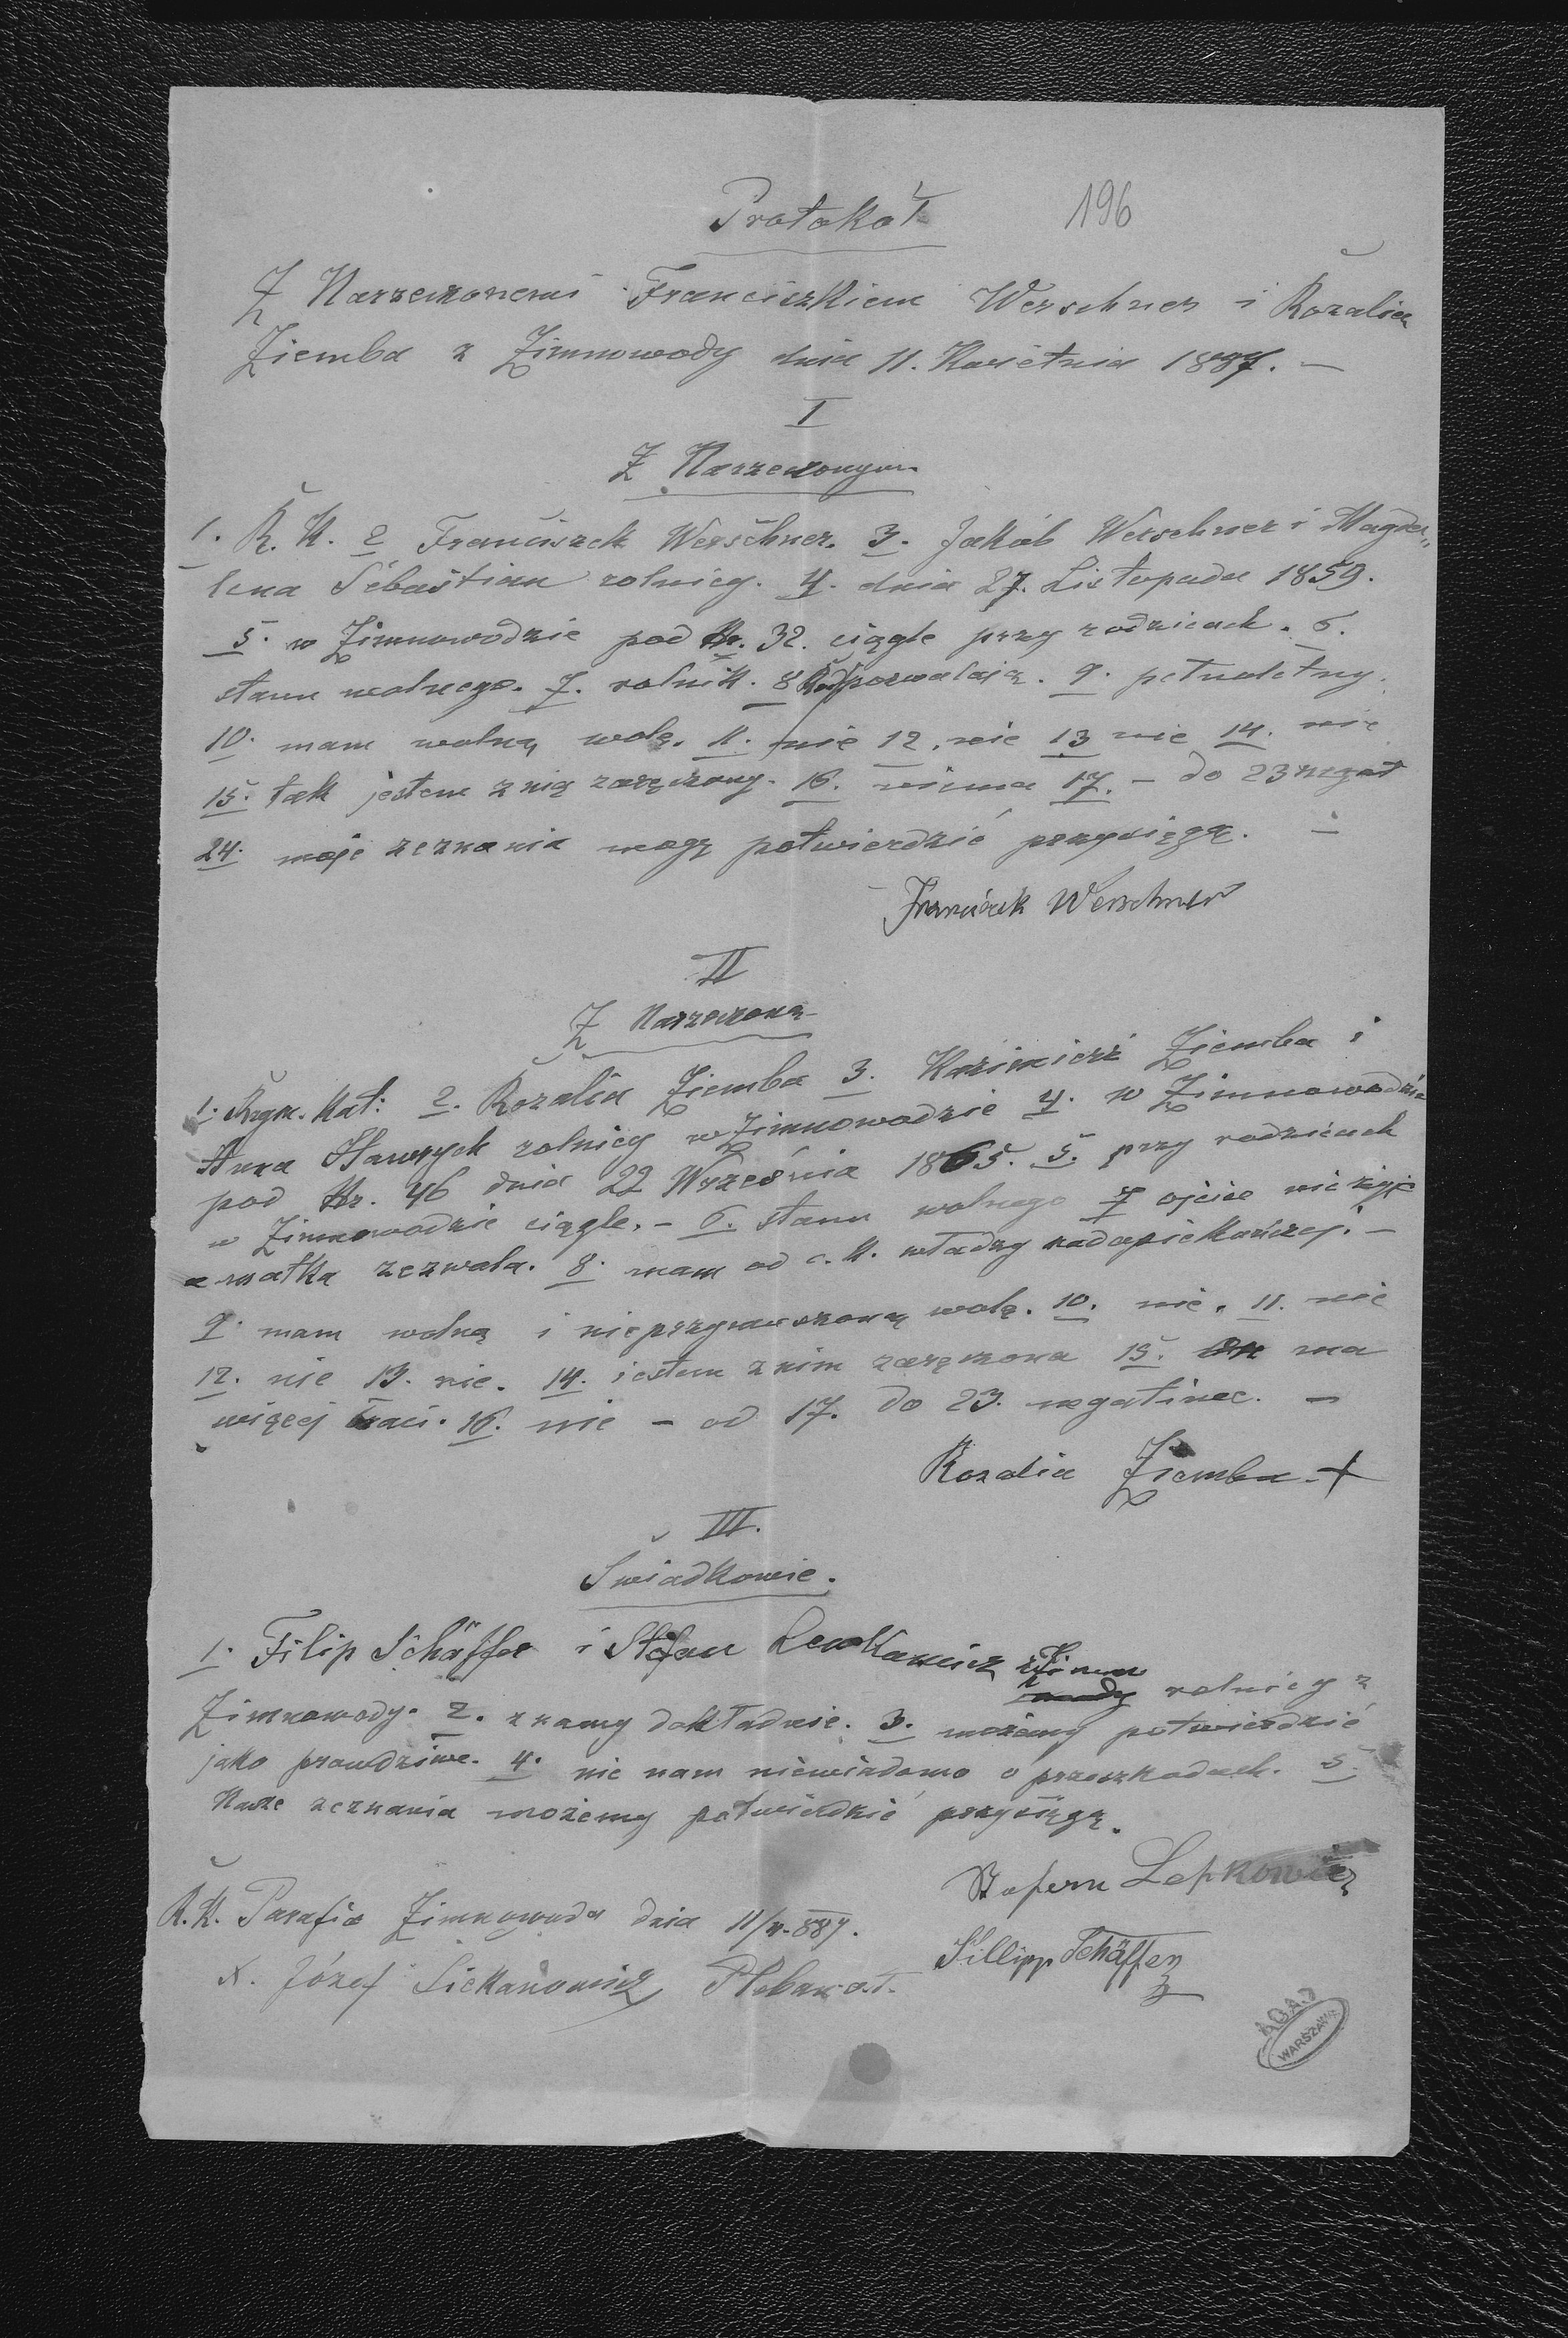 Protokoł
196
Z Narzeczonemi Franciszkiem Werschner i Rozalią
Ziemba z Zimnowody dnia 11. Kwietnia 1887. —
I
Z Narzeczonym
1. R. K. 2 Franciszek Werschner. 3. Jakób Werschner i Magda„
lena Sebastian rolnicy. 4. dnia 27. Listopada 1859.
5. w Zimnowodzie pod Nr. 32. ciągle przy rodzicach. 6.
stanu wolnego. 7. rolnik. 8 pozwalają. 9. pełnoletny.
10. mam wolną wolę. 11. nie 12. nie 13 nie 14. nie
15. tak jestem z nią zaręczony. 16. niema 17. – do 23 negat
24. moje zeznania mogę potwierdzić przysięgą. —
Franciszek Werschner
II
Z Narzeczoną
1. Rzym. Kat: 2. Rozalia Ziemba 3. Kazimierz Ziemba i
Anna rolnicy w Zimnowodzie 4. w Zimnowodzie
pod Nr. 46 dnia 22 Września 1865. 5. przy rodzicach
w Zimnowodzie ciągle. – 6. stanu wolnego 7 ojciec nieżyje
a matka zezwala. 8. mam od c. k. władzy nadopiekuńczej. –
9. mam wolną i nieprzymuszoną wolę. 10. nie. 11. nie
12. nie 13. nie. 14. jestem z nim zaręczona 15. On ma
więcej braci. 16. nie – od 17. do 23. negatinee. –
Rozalia Ziemba +
III.
Świadkowie.
1. Filip Schäffer i Stefan rolnicy z
Zimnowody. 2. znamy dokładnie. 3. możemy potwierdzić
jako prawdziwe. 4. nic nam niewiadomo o przeszkodach. 5.
Nasze zeznania możemy potwierdzić przysięgą.
Stefern Lepkowicz
R. K. Parafia Zimnowoda dnia 11/4.887.
Fillipp Schäffer
X. Józef Siekanowicz Pleban o.ł.
AGAD
WARSZAWA